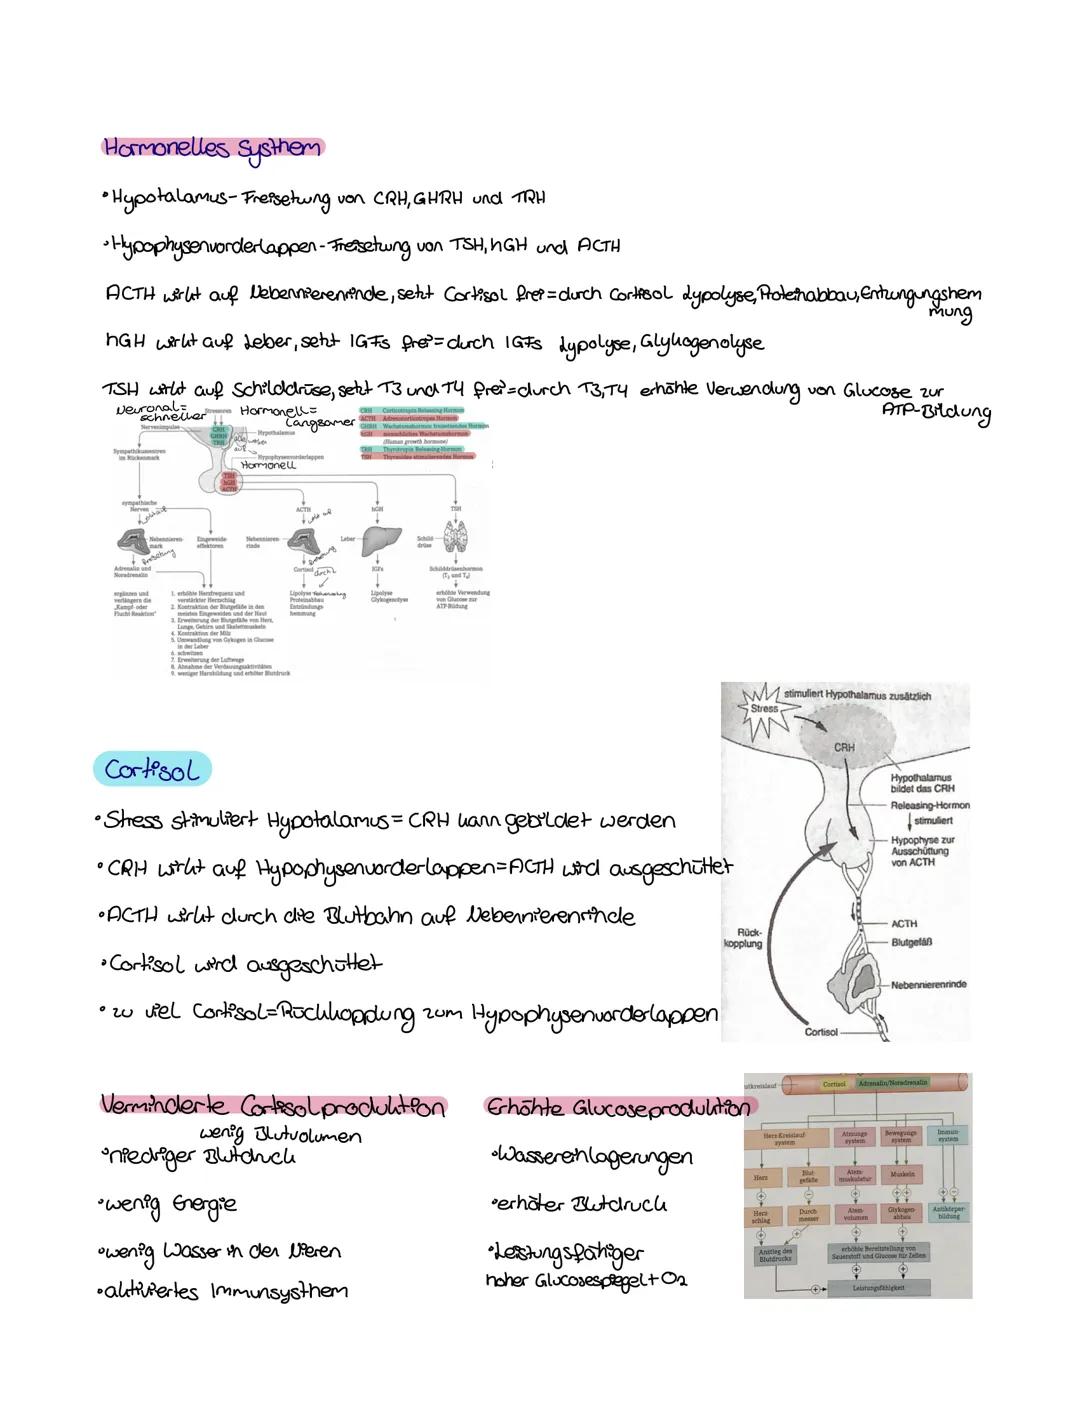 Hormonelles Systhem
•Hypotalamus-Freisetzung von CRH, GHRH und TRH
•Hypophysenvorderlappen-Freisetzung von TSH, hGH und ACTH
ACTH wirkt auf Nebennierenrinde, setzt Cortisol frei=durch Cortisol Lypolyse, Proteinabbau, Entzungungshem
mung
hGH wirkt auf Leber, setzt IGFs frei=durch IGFs Lypolyse, Glykogenolyse
TSH wirkt auf Schilddrüse, setzt T3 und T4 frei=durch T3,T4 erhöhte Verwendung von Glucose zur
ATP-Bildung
Neuronal=
schneller
Stressoren
Hormonell=
Langsamer
Nervenimpulse
CRH
GHRH
TRH
Hypothalamus
auf
Hypophysenvorderlappen
Hormonell
TSH
hGH
ACTH
CRH Corticotropin-Releasing-Hormon
ACTH Adrenocorticotropes Hormon
GHRH Wachstumshormon freisetzendes Hormon
hGH menschliches Wachstumshormon
(Human growth hormone)
TRH Thyrotropin Releasing-Hormon
TSH Thyreoidea stimulierendes Hormon
Sympathikuszentren
im Rückenmark
sympathische
Nerven
ACTH
hGH
TSH
wirkt auf
Nebennieren-
mark
Eingeweide-
effektoren
Nebennieren-
rinde
Leber
Schild-
drüse
Freisetzung
Adrenalin und
Noradrenalin
Cortisol
durch
IGFs
Schilddrüsenhormon
(T3 und T4)
ergänzen und
verlängern die
„Kampf- oder
Flucht-Reaktion"
1. erhöhte Herzfrequenz und
verstärkter Herzschlag
2. Kontraktion der Blutgefäße in den
meisten Eingeweiden und der Haut
3. Erweiterung der Blutgefäße von Herz,
Lunge, Gehirn und Skelettmuskeln
4. Kontraktion der Milz
5. Umwandlung von Gykogen in Glucose
in der Leber
6. schwitzen
7. Erweiterung der Luftwege
8. Abnahme der Verdauungsaktivitäten
9. weniger Harnbildung und erhöter Blutdruck
Lipolyse
Proteinabbau
Entzündungs-
hemmung
Lipolyse
Glykogenolyse
erhöhte Verwendung
von Glucose zur
ATP-Bildung
Cortisol
•Stress stimuliert Hypotalamus= CRH kann gebildet werden
•CRH wirkt auf Hypophysenvorderlappen=ACTH wird ausgeschüttet
•ACTH wirkt durch die Blutbahn auf Nebennierenrinde
•Cortisol wird ausgeschüttet
•zu viel Cortisol=Rückkopplung zum Hypophysenvorderlappen
Stress
stimuliert Hypothalamus zusätzlich
CRH
Hypothalamus
bildet das CRH
Releasing-Hormon
stimuliert
Hypophyse zur
Ausschüttung
von ACTH
ACTH
Blutgefäß
Rück-
kopplung
Nebennierenrinde
Cortisol
Verminderte Cortisolproduktion
wenig Blutvolumen
•niedriger Blutdruck
•wenig Energie
•wenig Wasser in den Nieren
•aktiviertes Immunsysthem
Erhöhte Glucoseproduktion
•Wassereinlagerungen
•erhöter Blutdruck
•Leistungsfähiger
hoher Glucosespiegel+O2
utkreislauf
Cortisol
Adrenalin/Noradrenalin
Herz-Kreislauf-
system
Atmungs-
system
Bewegungs-
system
Immun-
system
Herz
Blut-
gefäße
Atem-
muskulatur
Muskeln
Herz-
schlag
Durch-
messer
Atem-
volumen
Glykogen-
abbau
Antikörper-
bildung
Anstieg des
Blutdrucks
erhöhte Bereitstellung von
Sauerstoff und Glucose für Zellen
Leistungsfähigkeit